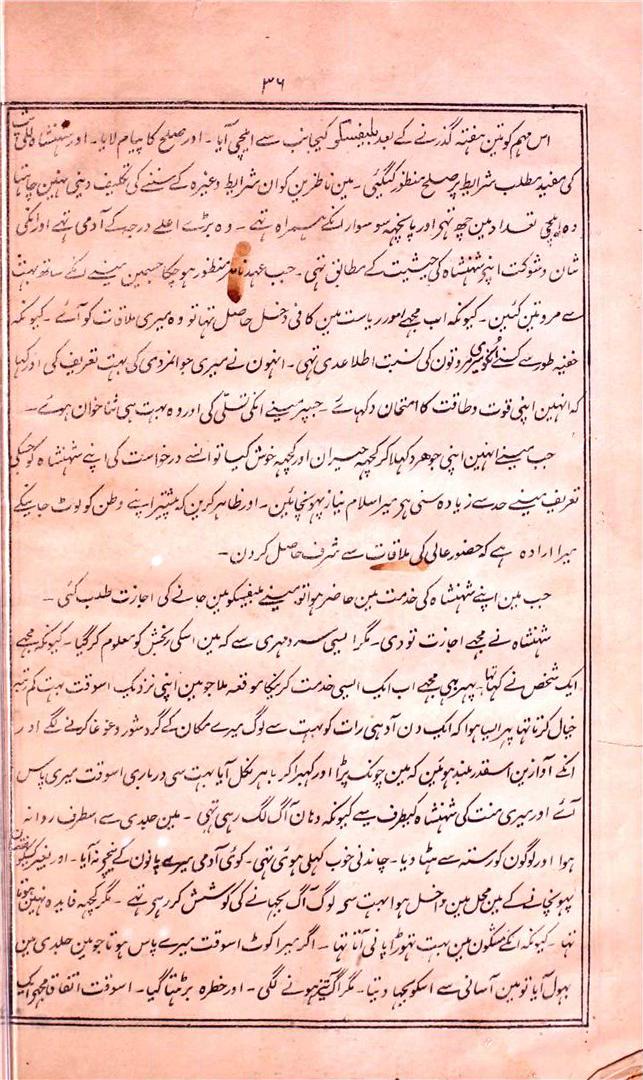 ۳۶
اس مہم کو تین ہفتہ گذرنے کے بعد بلیفسکو کیجانب سے ایلچی آیا ۔ اور صلح کا پیام لایا ۔ اور شہنشاہ للی پٹ
کی مفید مطلب شرایط پر صلح منظور کیگئی ۔ مین ناظرین کو ان شرایط وغیرہ کے سننے کی تکلیف دینی نہین چاہتا
وہ ایلچی تعداد مین چھ تہے اور پانچہ سو سوار انکے ہمراہ تہے ۔ وہ بڑے اعلے درجہ کے آدمی تہے اور انکی
شان و شوکت اپنے شہنشاہ کی حیثیت کے مطابق تہی ۔ جب عہدنامہ منظور ہو چکا جسمین مینے انکے ساتھ بہت
سے مروتین کئین ۔ کیونکہ اب مجھے امور ریاست مین کافی دخل حاصل تہا تو وہ میری ملاقات کو آئے ۔ کیونکہ
خفیہ طور سے کسنے انکو میری مروتون کی نسبت اطلاع دی تہی ۔ انہون نے میری جوانمردی کی بہت تعریف کی اور کہا
کہ انہین اپنی قوت و طاقت کا امتحان دکہائے ۔ جسپر مینے انکی تسلی کی اور وہ بہت ہی ثنا خوان ہوئے ۔
جب مینے انہین اپنی جوھر دکہلا کر کچہہ حیران اور کچہہ خوش کیا تو انسے درخواست کی اپنے شہنشاہ کو جسکی
تعریف مینے حد سے زیادہ سنی ہی میرا سلام نیاز پہونچائین ۔ اور ظاہر کرین کہ پیشتر اپنے وطن کو لوٹ جانیکے
میرا ارادہ ہے کہ حضور عالی کی ملاقات سے شرف حاصل کردن ۔
جب مین اپنے شہنشاہ کی خدمت مین حاضر ہوا تو مینے بلیفیسکو مین جانے کی اجازت طلب کئی ۔
شہنشاہ نے مجھے اجازت تو دی ۔ مگر ایسی سرد مہری سے کہ مین اسکی رنجش کو معلوم کر گیا ۔ کیونکہ مجھے
ایک شخص نے کہا تہا ۔ پہر بہی مجھے اب ایک ایسی خدمت کرنیکا موقعہ ملا جو مین اپنی نزدیک اسوقت بہت کم تیر
خیال کرتا تہا پہر ایسا ہوا کہ ایک دن آدہی رات کو بہت سے لوگ میرے مکان کے گرد شور و غوغا کرنے لگے اور
انکے آوازین اسقدر بلند ہوئین کہ مین چونک پڑا اور گہبرا کر باہر نکل آیا بہت سی درباری اسوقت میری پاس
آئے اور میری منت کی شہنشاہ کیطرف سے کیونکہ وہان آگ لگ رہی تہی ۔ مین جلدی سے اسطرف روانہ
ہوا اور لوگون کو رستہ سے ہٹا دیا ۔ چاندنی خوب کہلی ہوئی تہی ۔ کوئی آدمی میرے پانون کے نیچے نہ آیا ۔ اور بغیر کسیکو نقصان
پہونچانے کے مین محل مین داخل ہوا بہت سی لوگ آگ بجہانے کی کوشش کر رہی تہے ۔ مگر کچہہ فایدہ نہین ہوتا
تہا ۔ کیونکہ انکے مشکون مین بہت تہوڑا پانی آتا تہا ۔ اگر میرا کوٹ اسوقت میرے پاس ہوتا جو مین جلدی مین
بہول آیا تو مین آسانی سے اسکو بجہا دیتا ۔ مگر آگ تیز ہونے لگی ۔ اور خطرہ بڑہتا گیا ۔ اسوقت اتفاقا مجہے ایک